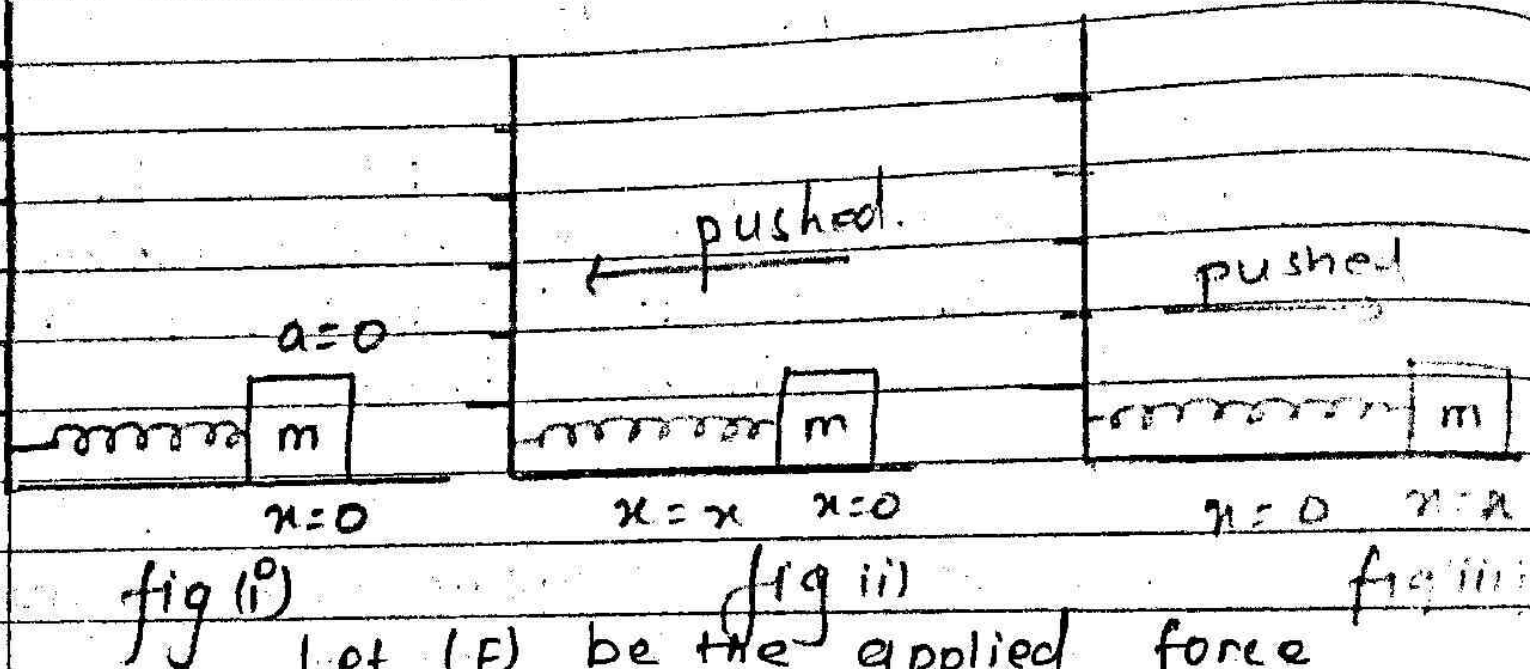 pushed.
pushed
a=0
m m m
x=0 x=x x=0 x=0 x=x
fig (i) fig ii) fig iii
Let (F) be the applied force